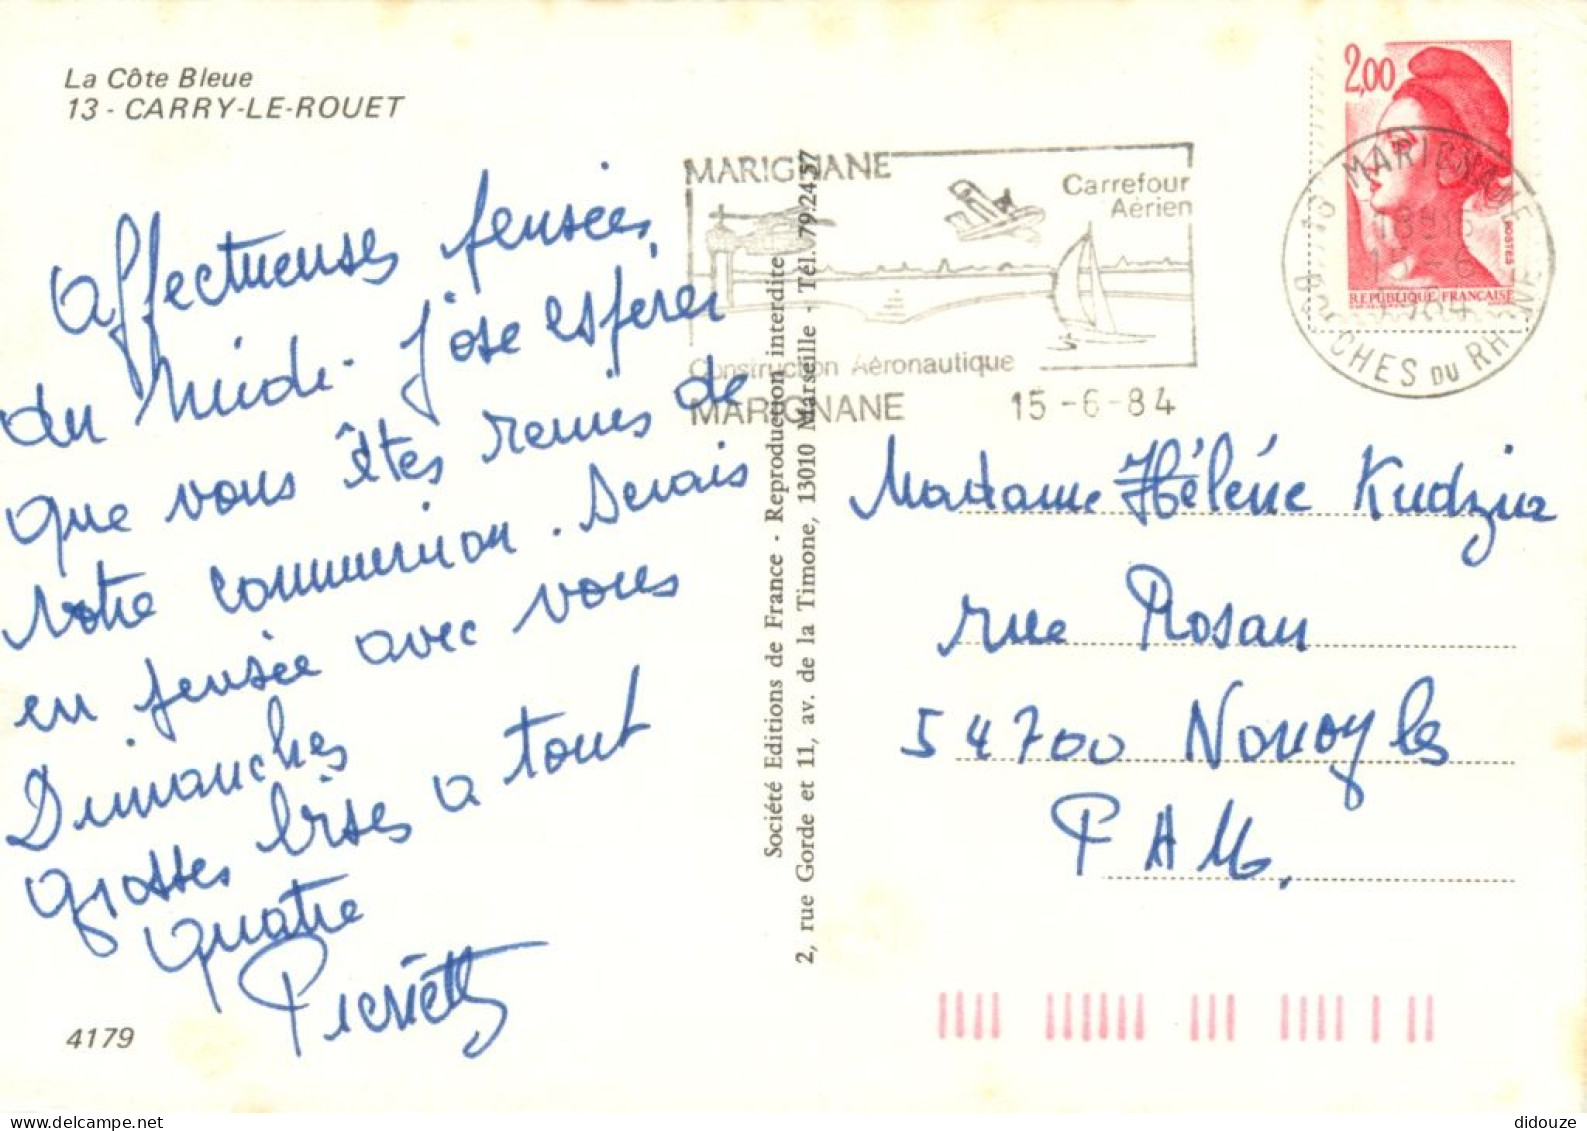 La Côte Bleue
13 - CARRY-LE-ROUET
Affectueuses pensées
du Midi. j'ose espérer
que vous êtes remis de
votre communion. Serais
en pensée avec vous
Dimanche
grosses bises a tout
quatre
Pierrette
4179
Société Editions de France - Reproduction interdite
2, rue Gorde et 11, av. de la Timone, 13010 Marseille - Tél. 79.24.57
MARIGNANE
Carrefour
Aérien
Construction Aéronautique
MARIGNANE 15-6-84
2,00
POSTES
REPUBLIQUE FRANÇAISE
13 MARIGNANE
15-6
1984
BOUCHES DU RHONE
Madame Hélène Kudzia
rue Rosan
54700 Norroy les
P A M.
didouze